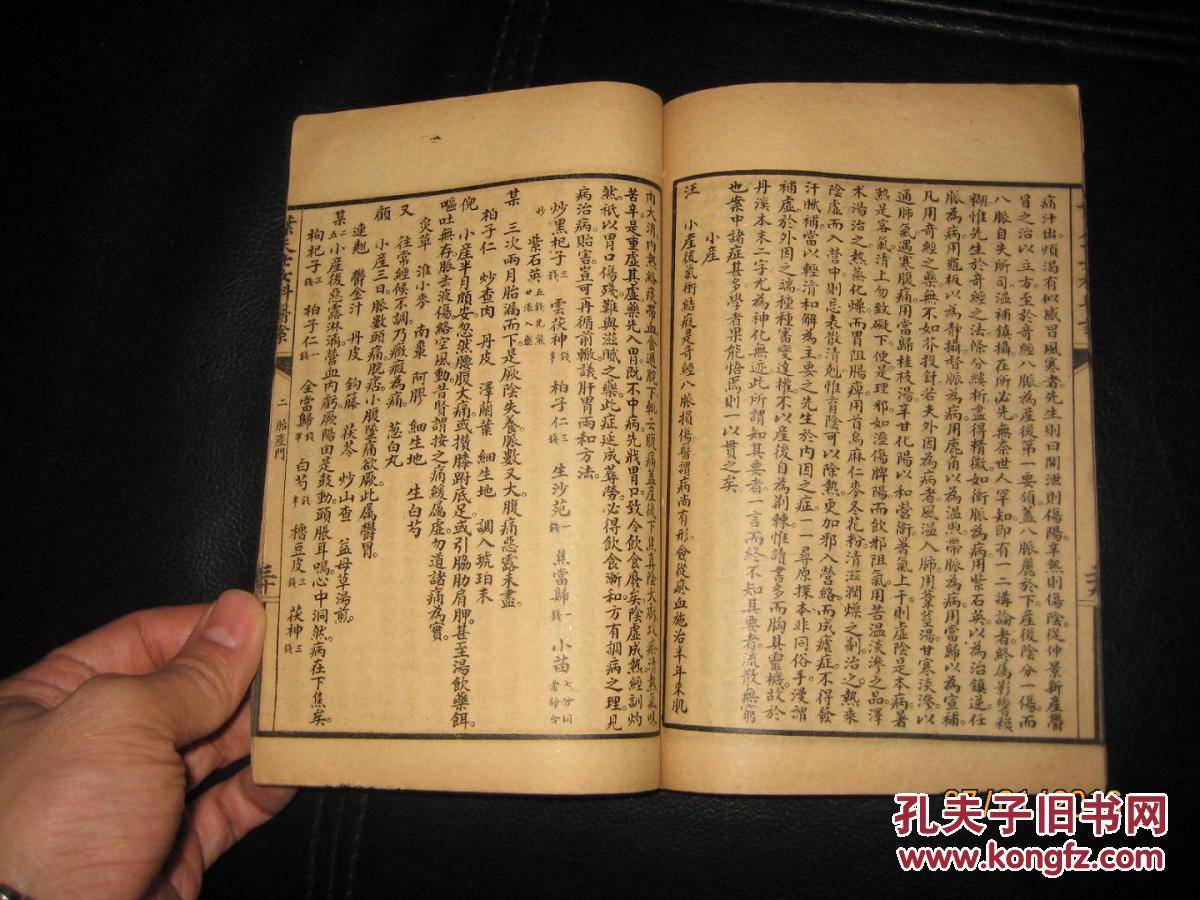 痛汗出煩渴有似感冒風寒者先生則曰開泄則傷陽辛熱則傷陰從仲景新產鬱
冒之治以立方至於奇經八脈為產後第一要領蓋八脈麗於下產後陰分一傷而
八脈自失所司溫補鎮攝在所必先無奈世人罕知即有一二講論者終屬影響模
糊惟先生於奇經之法條分縷析盡得精微如衝脈為病用紫石英以為治鎮逆任
脈為病用龜板以為靜攝督脈為病用鹿角以為溫煦帶脈為病用當歸以為宣補
凡用奇經之藥無不如芥投針若夫外因為病者風溫入肺用葦莖湯甘寒淡滲以
通肺氣遇寒腹痛用當歸桂枝湯辛甘化陽以和營衛暑氣上干則虛陰是本病暑
熱是客氣清上勿致礙下便是理邪如濕傷脾陽而飲邪阻氣用苦溫淡滲之品澤
朮湯治之熱蒸化燥而胃阻腸痺用首烏麻仁麥冬花粉清滋潤燥之劑治之熱乘
陰虛而入營中則忌表散清剋惟育陰可以除熱更加邪入營絡而成瘧症不得發
汗膩補當以輕清和解為主要之先生於內因之症一一尋原探本非同俗手漫謂
補虛於外因之端種種審變達權不以產後自為荊棘惟讀書多而胸具靈機故於
丹溪本末二字尤為神化無迹此所謂知其要者一言而終不知其要者流散無窮
也案中諸症甚多學者果能悟焉則一以貫之矣
小產
汪 小產後氣衝結瘕是奇經八脈損傷醫謂病尚有形僉從瘀血施治半年來肌
肉大消內熱絡痰帶血食過脘下輒云腹痛蓋產後下焦真陰大虧攻瘀清熱氣味
苦辛是重虛其虛藥先入胃既不中病先戕胃口致令飲食廢矣陰虛成熱經訓灼
然祇以胃口傷殘難與滋膩之藥此症延成蓐勞必得飲食漸和方有調病之理見
病治病貽害豈可再循前轍議肝胃兩和方法
炒黑杞子三錢 雲茯神錢半 柏子仁三錢 生沙苑一錢 焦當歸一錢 小茴七分同
紫石英五錢先煎廿滾入藥
某 三次兩月胎漏而下是厥陰失養脈數又大腹痛惡露未盡
柏子仁 炒查肉 丹皮 澤蘭葉 細生地 調入琥珀末
倪 小產半月頗安忽然腰腹大痛或攢膝跗足底或引脇肋肩胛甚至湯飲藥餌
嘔吐無存脹去液傷絡空風動昔賢謂按之痛緩屬虛勿道諸痛為實
炙草 淮小麥 南棗 阿膠 細生地 生白芍
又 往常經候不調乃癥瘕為痛 葱白丸
顧 小產三日脈數頭痛脘痞小腹墜痛欲厥此屬鬱冒
連翹 鬱金汁 丹皮 鈎藤 茯苓 炒山查 益母草湯煎
某二五 小產後惡露淋漓營血內虧厥陽由是鼓動頭脹耳鳴心中洞然病在下焦矣
枸杞子三錢 柏子仁一錢 全當歸錢半 白芍錢半 穭豆皮三錢 茯神三錢
葉天士女科醫案
二 胎產門
三十
孔夫子旧书网
www.kongfz.com